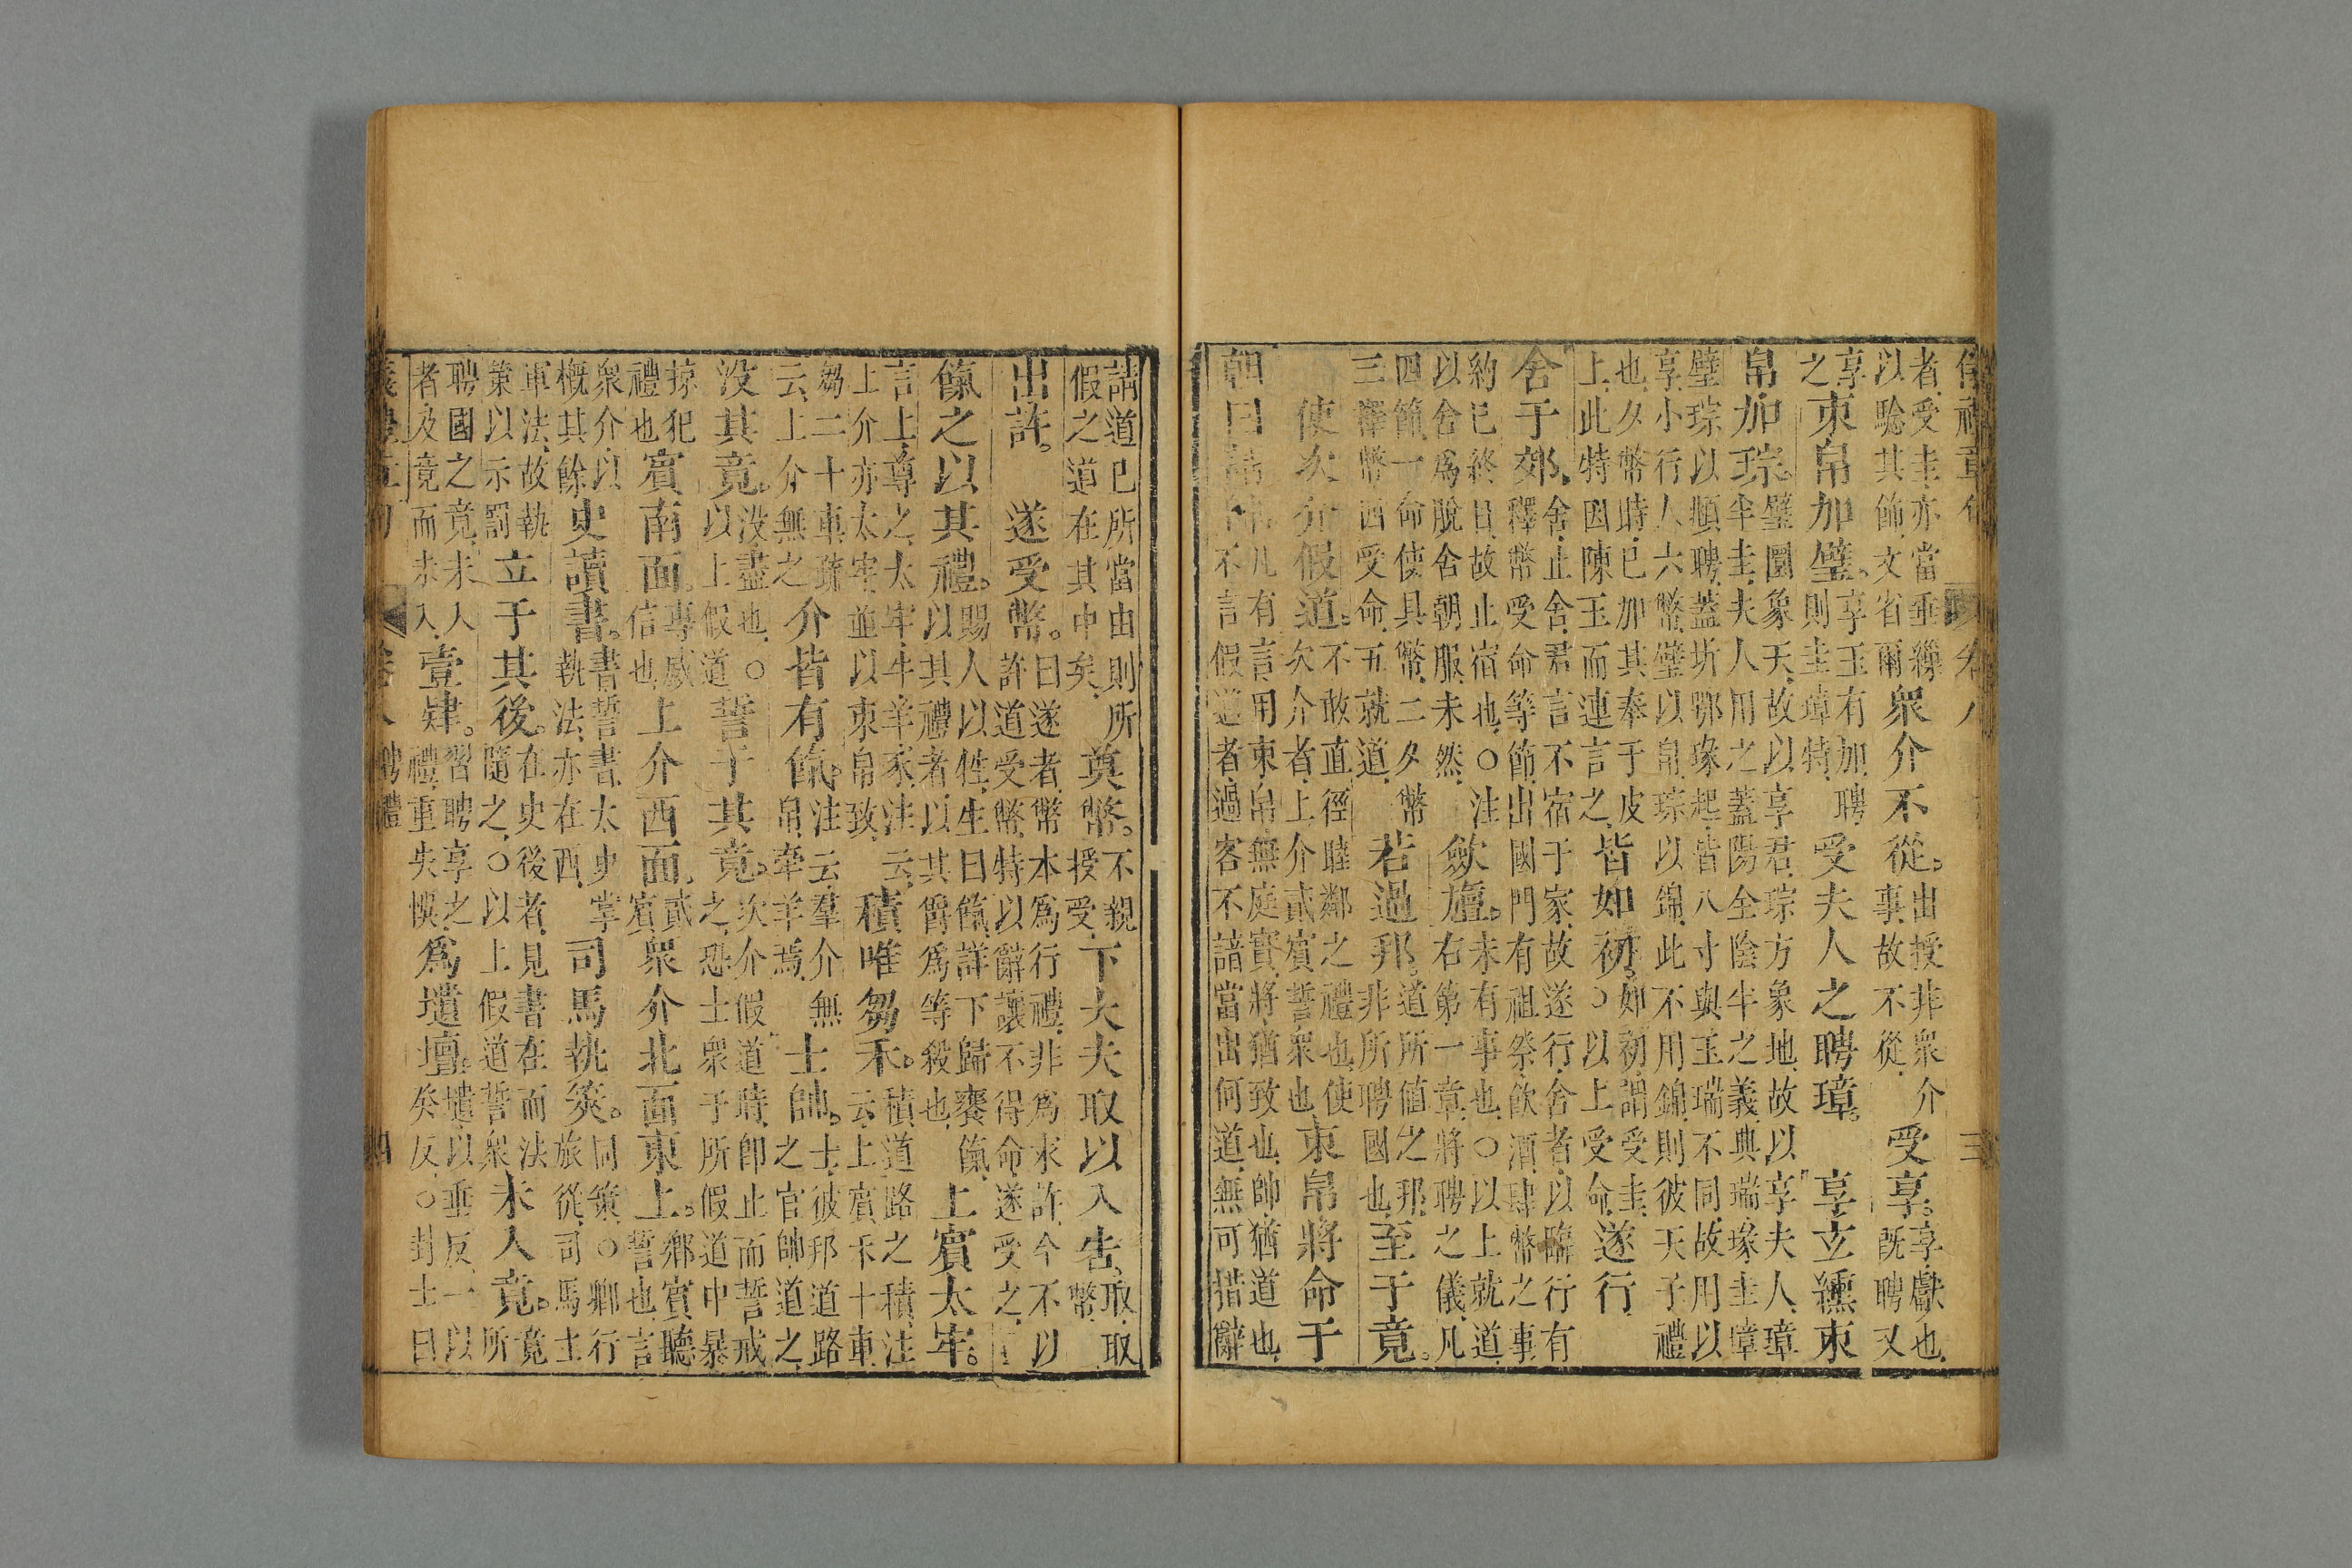 儀禮章句 卷八 三
者受圭亦當垂繅
以聣其飾文省爾衆介不從。出授非衆介
事故不從受享。享獻也
旣聘又
享束帛加璧。享玉有加聘
則圭璋特受夫人之聘璋。享玄纁束
帛加琮。璧圜象天故以享君琮方象地故以享夫人璋
半圭夫人用之蓋陽全陰半之義典瑞瑑圭璋
璧琮以頫聘蓋圻鄂瑑起皆八寸與玉瑞不同故用以
享小行人六幣璧以帛琮以錦此不用錦則彼天子禮
也夕幣時已加其奉于皮
上此特因陳玉而連言之皆如初。如初謂受圭
○以上受命遂行
舍于郊。舍止舍君言不宿于家故遂行舍者以臨行有
釋幣受命等節出國門有祖祭飮酒肆幣之事
約已終日故止宿也○注
以舍爲脫舍朝服未然斂旜。未有事也○以上就道
右第一章將聘之儀凡
四節一命使具幣二夕幣
三釋幣四受命五就道若過邦。道所值之邦
非所聘國也至于竟。
使次介假道。不敢直徑睦鄰之禮也使
次介者上介貳賓誓衆也束帛將命于
朝曰請帥。凡有言用束帛無庭實將猶致也帥猶道也
不言假道者過客不諳當出何道無可措辭
請道已所當由則所
假之道在其中矣奠幣。不親
授受下大夫取以入告。取取
幣
出許。遂受幣。曰遂者幣本爲行禮非爲求許今不以
許道受幣特以辭讓不得命遂受之
餼之以其禮。賜人以牲生曰餼詳下歸饔餼
以其禮者以其爵爲等殺也上賓太牢。
言上尊之太牢牛羊豕注云
上介亦太牢並以束帛致積唯芻禾。積道路之積注
云上賓禾十車
芻二十車疏
云上介無之介皆有餼。注云羣介無
帛牽羊焉士帥。士彼邦道路
之官帥道之
没其竟。没盡也○
以上假道誓于其竟。次介假道時卽止而誓戒
之恐士衆于所假道中暴
掠犯
禮也賓南面。專威
信也上介西面。貳
賓衆介北面東上。鄉賓聽
誓也言
衆介以
槪其餘史讀書。書誓書太史掌
執法亦在西司馬執筴。同策○鄉行
旅從司馬主
軍法故執
策以示罰立于其後。在史後者見書在而法
隨之○以上假道誓衆未入竟。竟
所
聘國之竟未人
者及竟而未入壹肄。習聘享之
禮重失悞爲壝壇。壝以垂反一以
矣反○封土曰
儀禮章句 卷八 聘禮 四